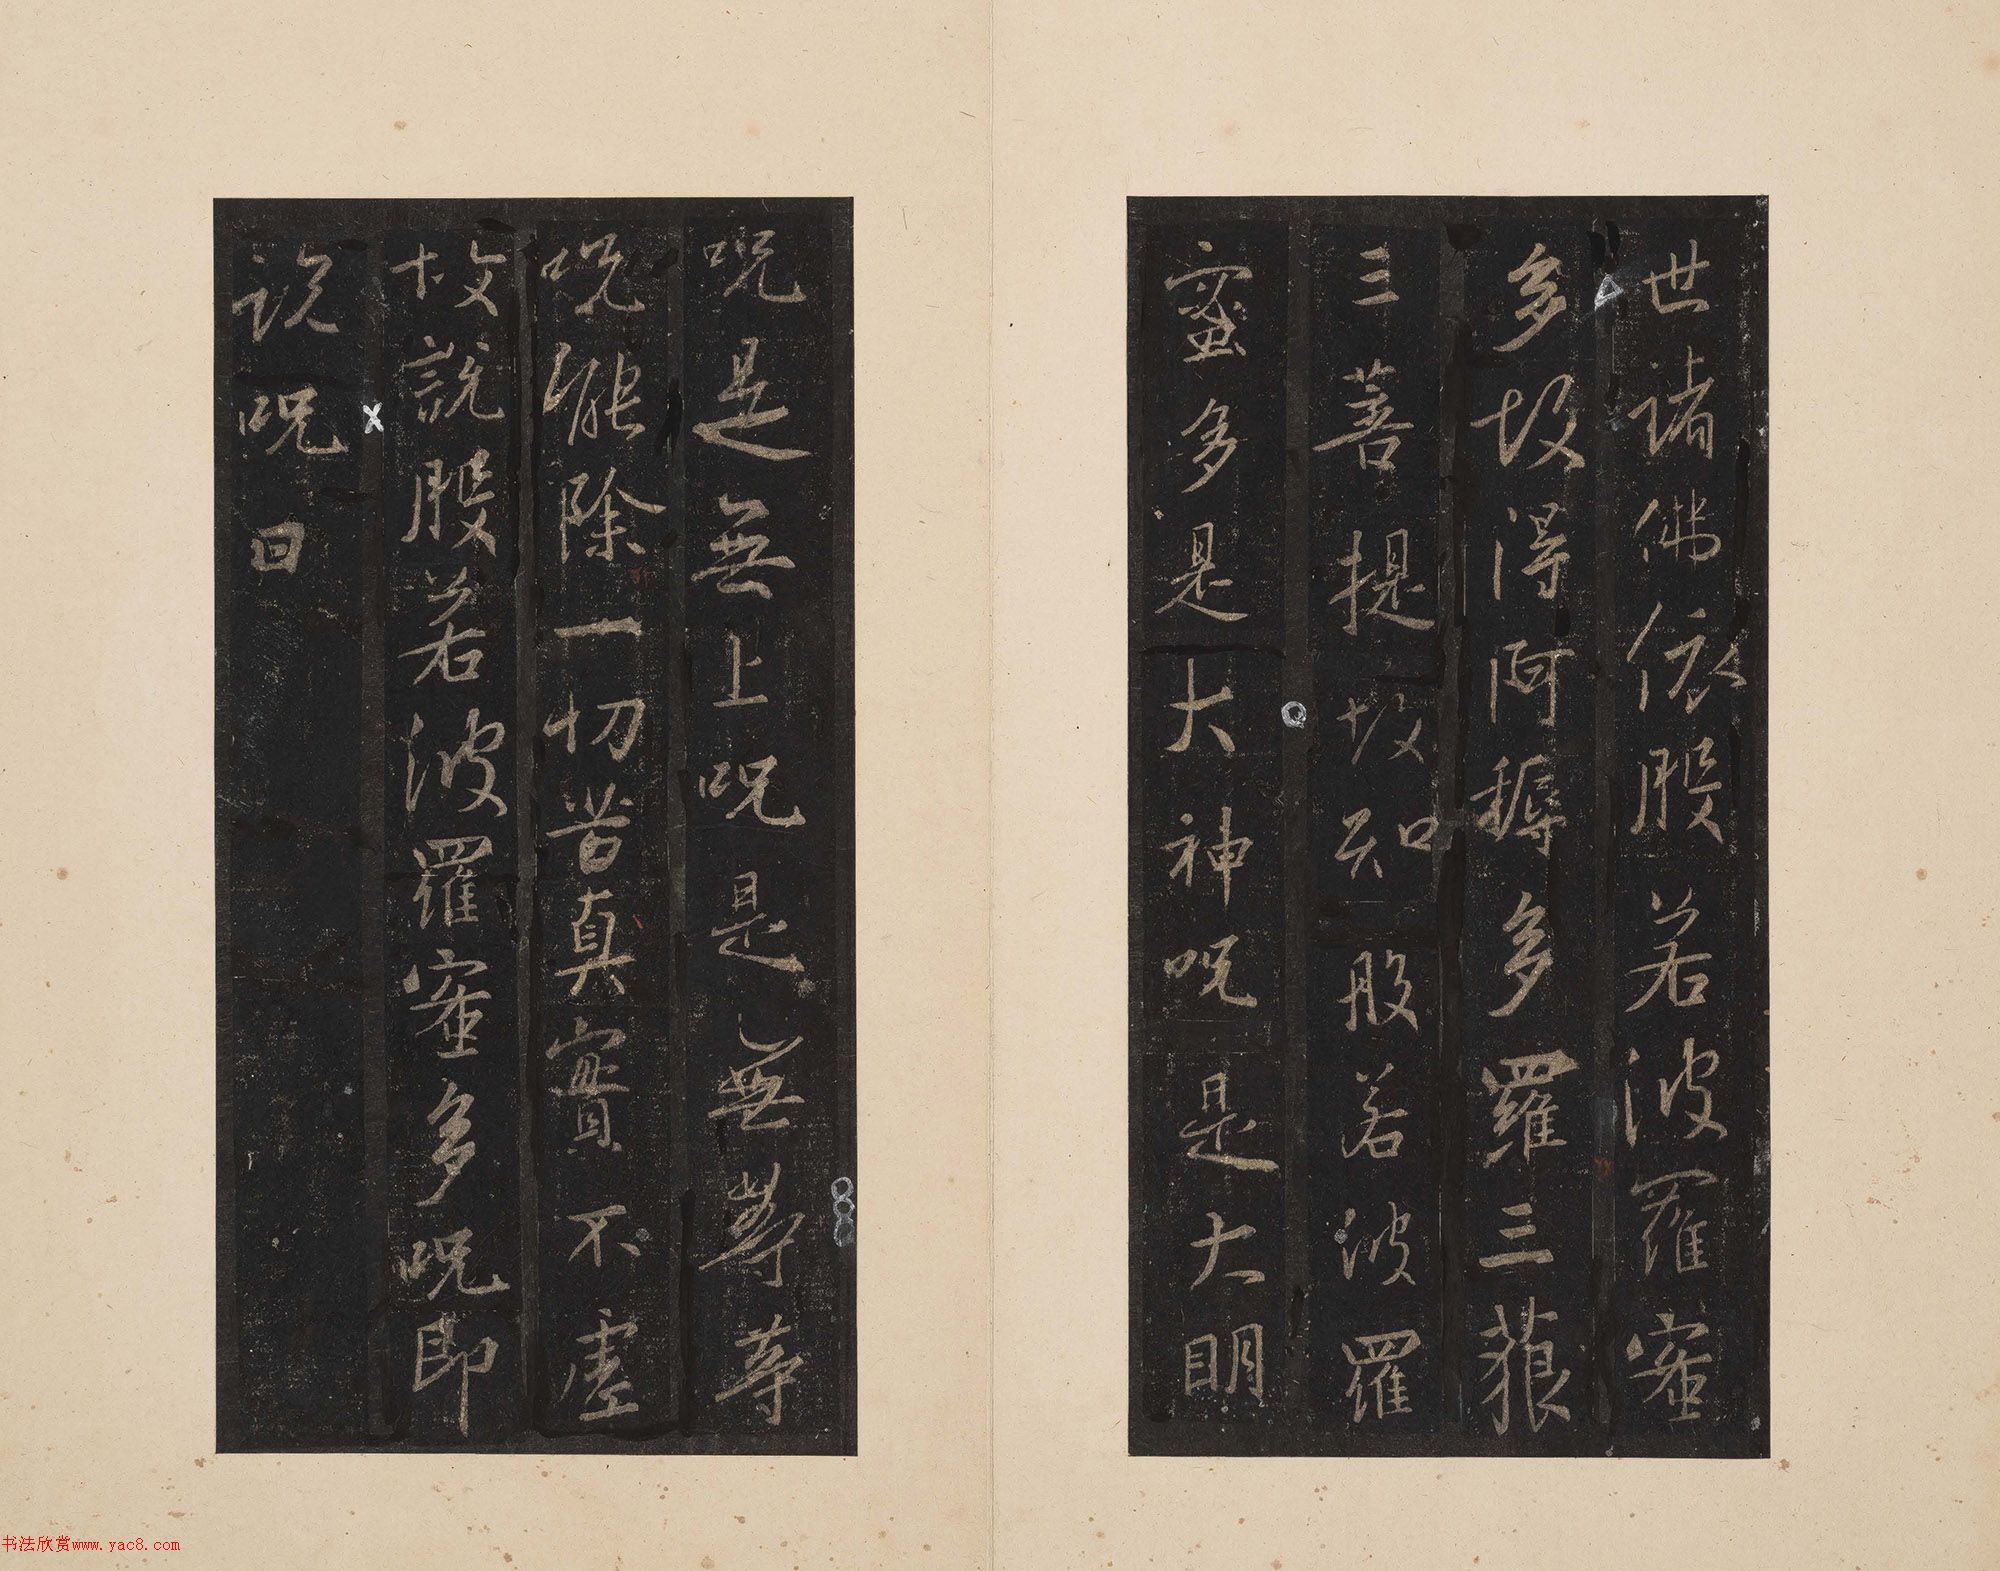 世諸佛依般若波羅蜜
多故得阿耨多羅三藐
三菩提故知般若波羅
蜜多是大神咒是大明
咒是無上咒是無等等
咒能除一切苦真實不虛
故說般若波羅蜜多咒即
說咒曰
书法欣赏www.yac8.com